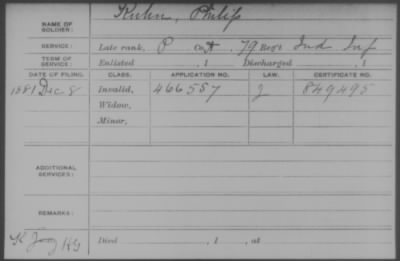 Kuhn, Philip
NAME OF SOLDIER:
SERVICE: Late rank, P Co. A, 79 Reg't Ind Inf
TERM OF SERVICE: Enlisted , 1 Discharged , 1
DATE OF FILING. CLASS. APPLICATION NO. LAW. CERTIFICATE NO.
1881 Dec 8 Invalid, 466557 J 849495
Widow,
Minor,
ADDITIONAL SERVICES:
REMARKS:
Died , 1 , at